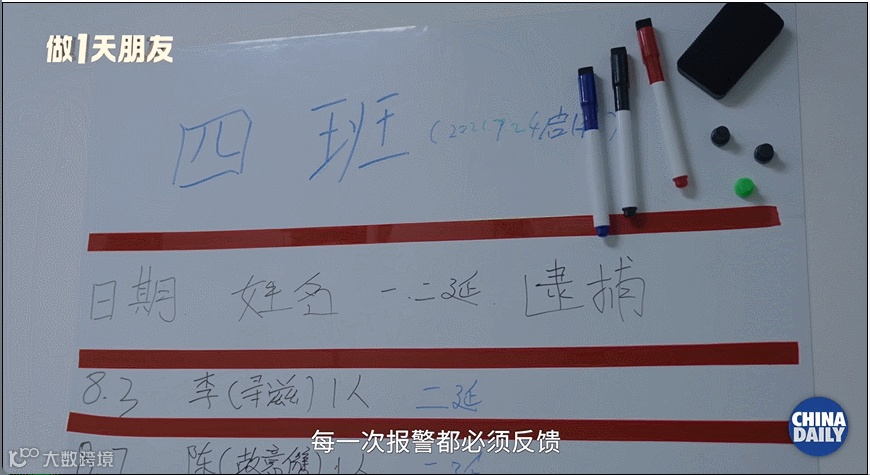 做1天朋友
四班
日期 姓名 一.二延 逮捕
8.3 李(寻滋)1人 二延
每一次报警都必须反馈
7 陈(故意伤)1人 二延
大数跨境
CHINA
DAILY